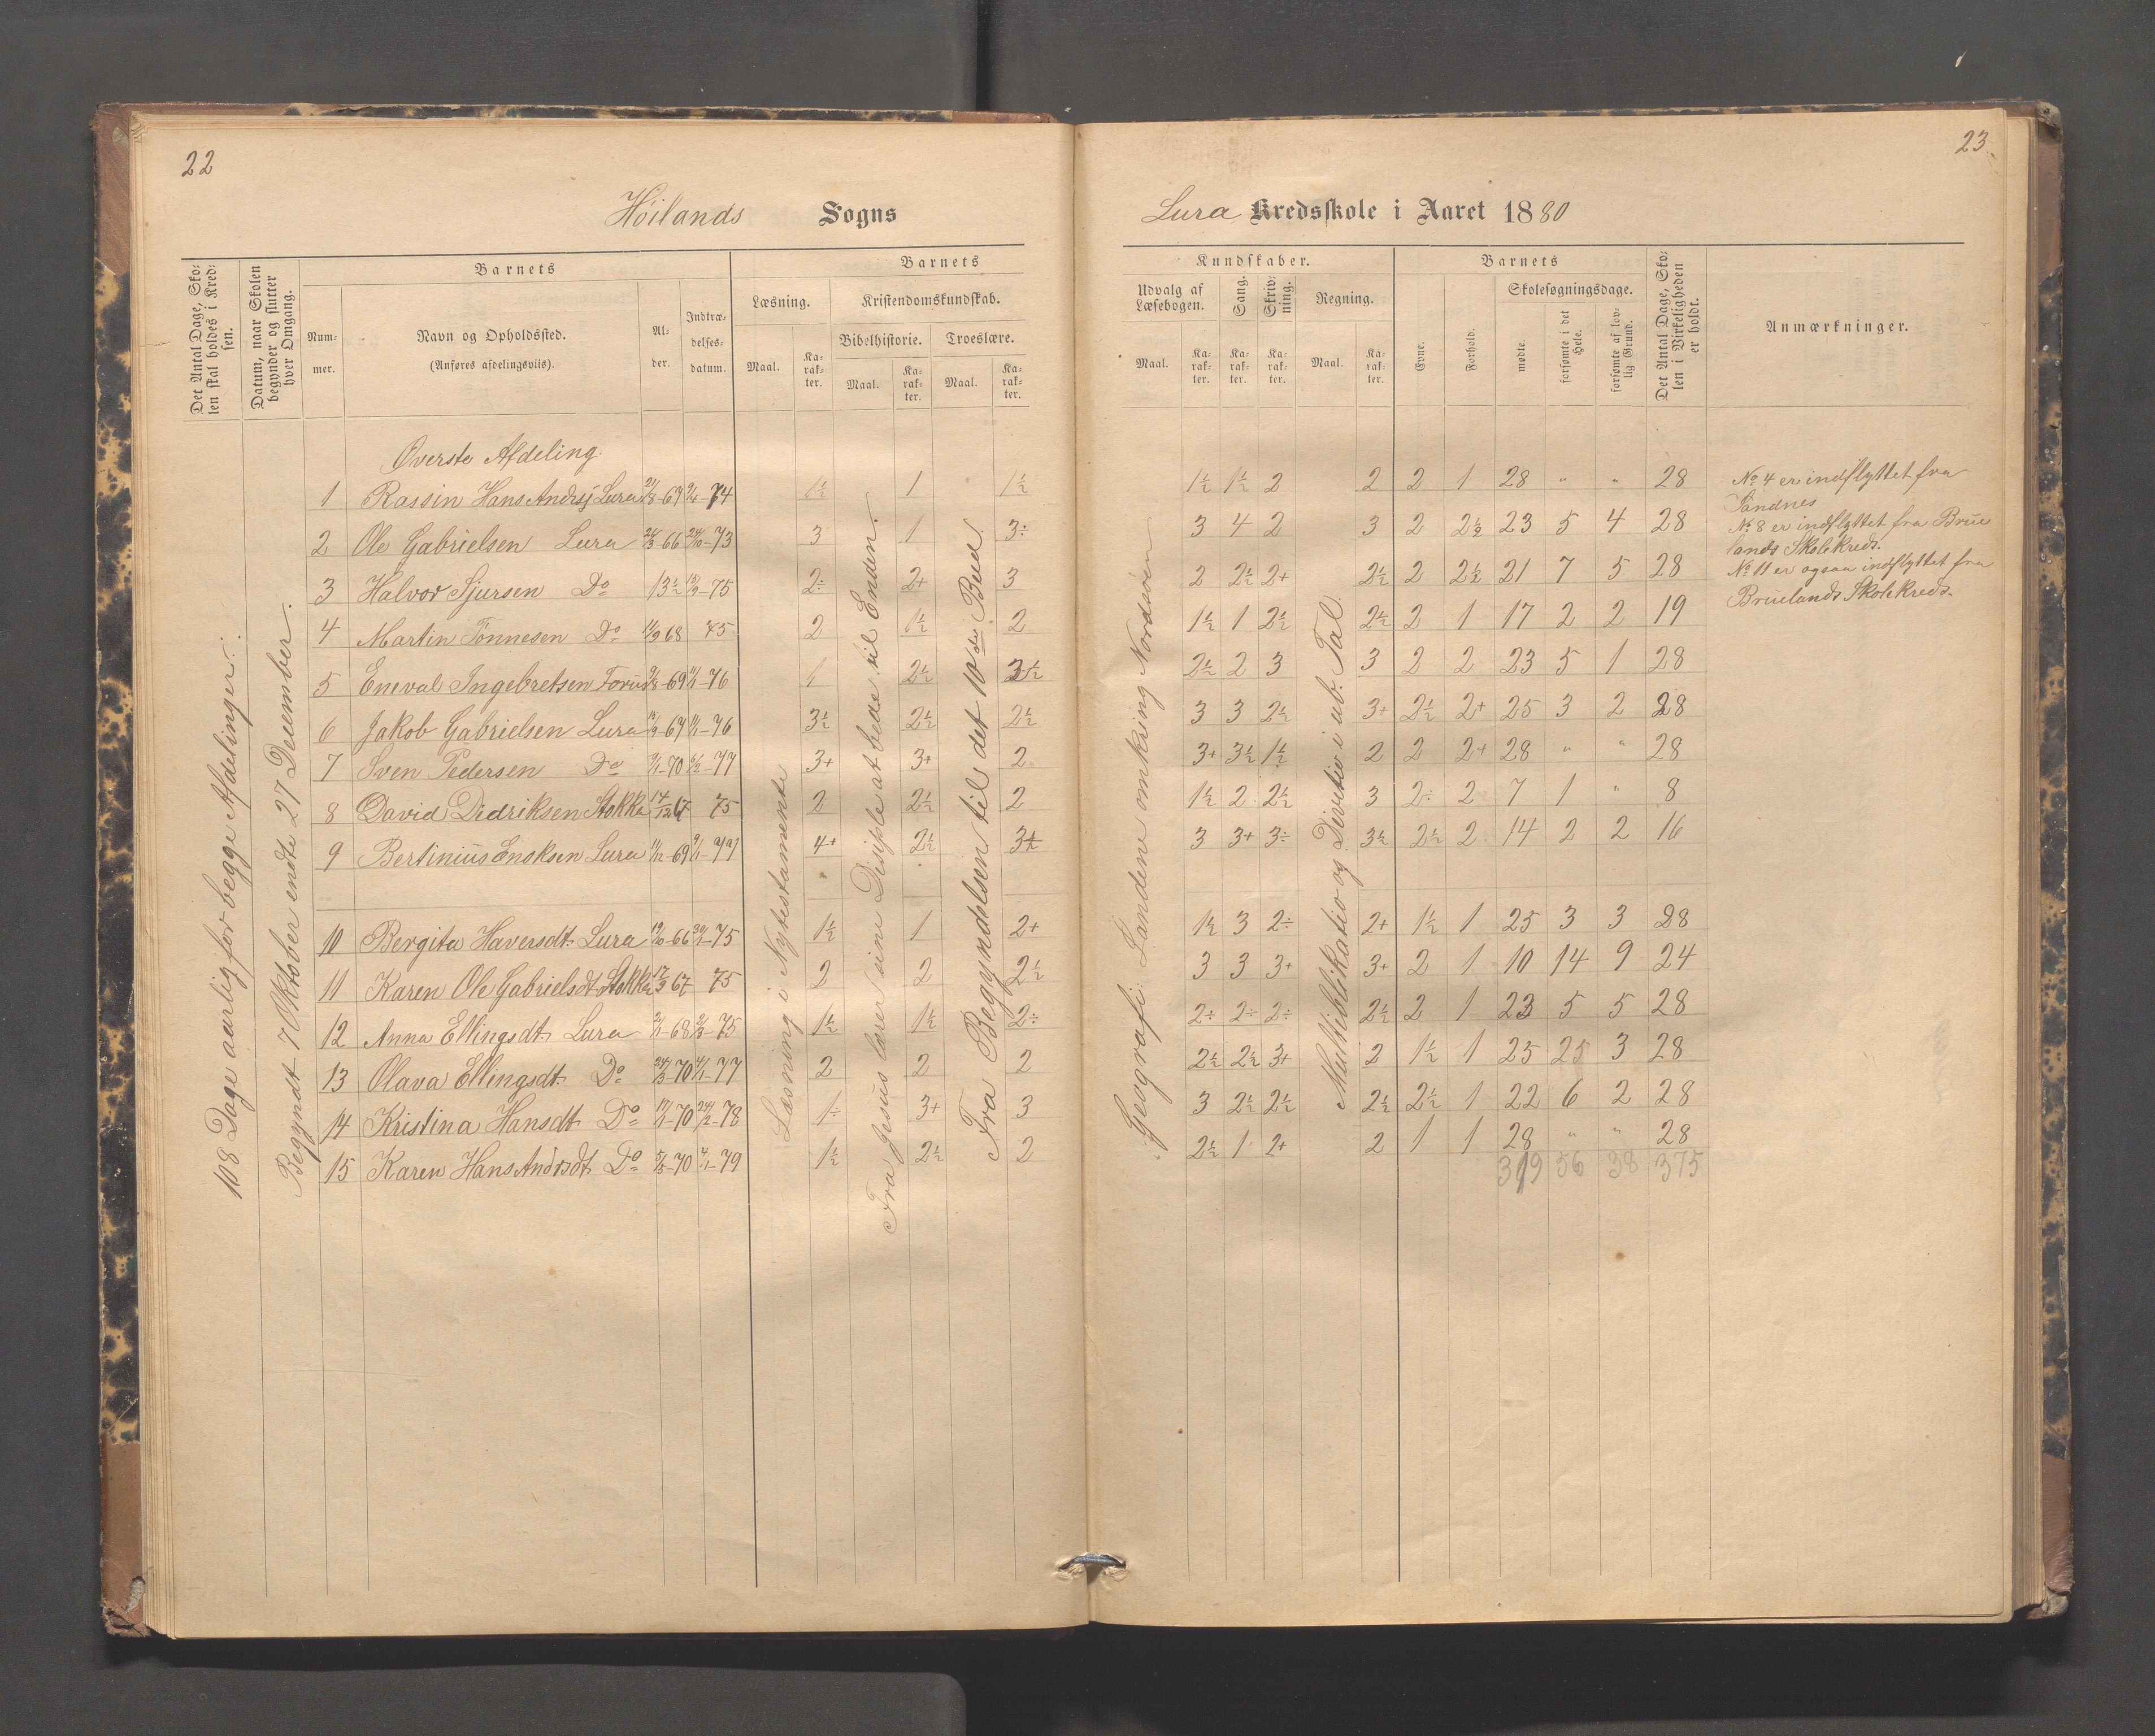 22
Höilands Sogns
Det Antal Dage, Sko-
len skal holdes i Kred-
sen.
Datum, naar Skolen
begynder og slutter
hver Omgang.
Barnets
Num-
mer.
Navn og Opholdssted.
(Anføres afdelingsviis).
Al-
der.
Indtræ-
delses-
datum.
Barnets
Læsning.
Maal.
Ka-
rak-
ter.
Kristendomskundskab.
Bibelhistorie.
Maal.
Ka-
rak-
ter.
Troeslære.
Maal.
Ka-
rak-
ter.
108 Dage aarlig for begge Afdelinger.
Begyndt 7 Oktober endte 27 December.
Læsning i Nytestamente
Fra Jesus lærer sine Disiple at bede til Enden.
Fra Begyndelsen til det 10de Bud.
Øverste Afdeling.
1 Rassin Hans Andrsj Lura 21/8-69 9/4-74 1½ 1 1½
2 Ole Gabrielsen Lura 66 -73 3 1 3÷
3 Halvor Sjursen Do 13½ -75 2÷ 2+ 3
4 Martin Tønnesen Do 11/9 68 75 2 1½ 2
5 Eneval Ingebretsen Forus -69 -76 1 2½ 3½
6 Jakob Gabrielsen Lura -67 -76 3½ 2½ 2½
7 Sven Pedersen Do 9/1-70 -77 3+ 3+ 2
8 David Didriksen Stokka 14/12 67 75 2 2½ 2
9 Bertinius Enoksen Lura 11/12-69 9/1-77 4+ 2½ 3½
10 Bergita Haversdt. Lura 19/10-66 -75 1½ 1 2+
11 Karen Ole Gabrielsdt Stokka 67 75 2 2 2½
12 Anna Ellingsdt. Lura -68 -75 1½ 1½ 2÷
13 Olava Ellingsdt. Do -70 -77 2 2 2
14 Kristina Hansdt. Do -70 -78 1÷ 3+ 3
15 Karen Hans Andrsdt. Do -70 -79 1½ 2½ 2
23
Lura Kredsskole i Aaret 1880
Kundskaber.
Udvalg af
Læsebogen.
Maal.
Ka-
rak-
ter.
Sang.
Ka-
rak-
ter.
Skriv-
ning.
Ka-
rak-
ter.
Regning.
Maal.
Ka-
rak-
ter.
Barnets
Evne.
Forhold.
Skolesøgningsdage.
mødte.
forsømte i det
Hele.
forsømte af lov-
lig Grund.
Det Antal Dage, Sko-
len i Virkeligheden
er holdt.
Anmærkninger.
Geografi: Landene omkring Nordsøen
Multiblikatio og Divitio i ub. Tal.
1½ 1½ 2 2 2 1 28 " " 28
3 4 2 3 2 2½ 23 5 4 28
2 2½ 2+ 2½ 2 2½ 21 7 5 28
1½ 1 2½ 2½ 2 1 17 2 2 19
2½ 2 3 3 2 2 23 5 1 28
3 3 2½ 3+ 2½ 2+ 25 3 2 28
3+ 3½ 1½ 2 2 2+ 28 " " 28
1½ 2 2½ 3 2÷ 2 7 1 " 8
3 3+ 3÷ 3½ 2½ 2 14 2 2 16
1½ 3 2÷ 2+ 1½ 1 25 3 3 28
3 3 3+ 3+ 2 1 10 14 9 24
2÷ 2÷ 2÷ 2½ 2 1 23 5 5 28
2½ 2½ 3+ 2 1½ 1 25 25 3 28
3 2½ 2½ 2½ 2½ 1 22 6 2 28
2½ 1 2+ 2 1 1 28 " " 28
319 56 38 375
No 4 er indflyttet fra
Sandnes
No 8 er indflyttet fra Brue
lands Skolekreds.
No 11 er ogsaa indflyttet fra
Bruelands Skolekreds.